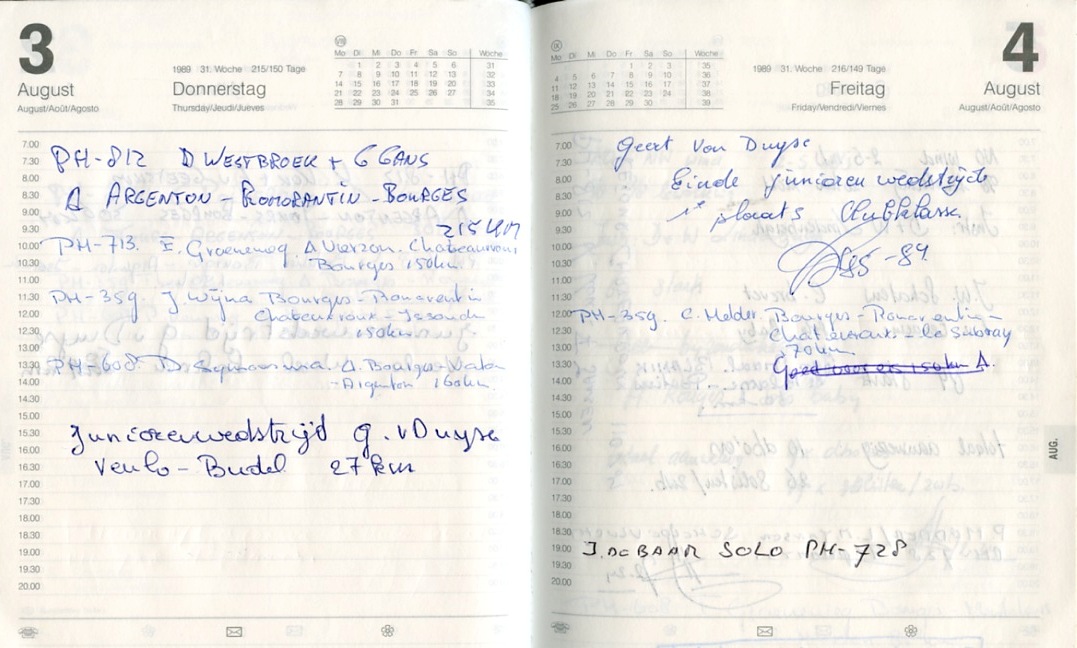 3
August
August/Août/Agosto
1989 31. Woche 215/150 Tage
Donnerstag
Thursday/Jeudi/Jueves
VIII
Mo Di Mi Do Fr Sa So Woche
1 2 3 4 5 6 31
7 8 9 10 11 12 13 32
14 15 16 17 18 19 20 33
21 22 23 24 25 26 27 34
28 29 30 31 35
7.00
7.30
8.00
8.30
9.00
9.30
10.00
10.30
11.00
11.30
12.00
12.30
13.00
13.30
14.00
14.30
15.00
15.30
16.00
16.30
17.00
17.30
18.00
18.30
19.00
19.30
20.00
PH-812 D WESTBROEK + G GANS
Δ ARGENTON - ROMORANTIN - BOURGES
215 KM
PH-713. Δ Vierzon. Chateauroux
Bourges 150km.
PH-359 J Wijna Bourges - Romorantin
Chateauroux - Issoudun
150km
PH-608. D. Δ. Bourges-Vatan
-Argenton 160km
Juniorenwedstrijd G. v Duyse
Venlo - Budel 27 km
IX
Mo Di Mi Do Fr Sa So Woche
1 2 3 35
4 5 6 7 8 9 10 36
11 12 13 14 15 16 17 37
18 19 20 21 22 23 24 38
25 26 27 28 29 30 39
1989 31. Woche 216/149 Tage
Freitag
Friday/Vendredi/Viernes
4
August
August/Août/Agosto
7.00
7.30
8.00
8.30
9.00
9.30
10.00
10.30
11.00
11.30
12.00
12.30
13.00
13.30
14.00
14.30
15.00
15.30
16.00
16.30
17.00
17.30
18.00
18.30
19.00
19.30
20.00
Geert Van Duyse
Einde junioren wedstrijd
1e plaats Clubklasse.
-89.
PH-359. C. Helder Bourges - Romorantin -
Chateauroux - la
70km
Goed voor een 150km Δ.
AUG.
J. DE BAAR SOLO PH-728